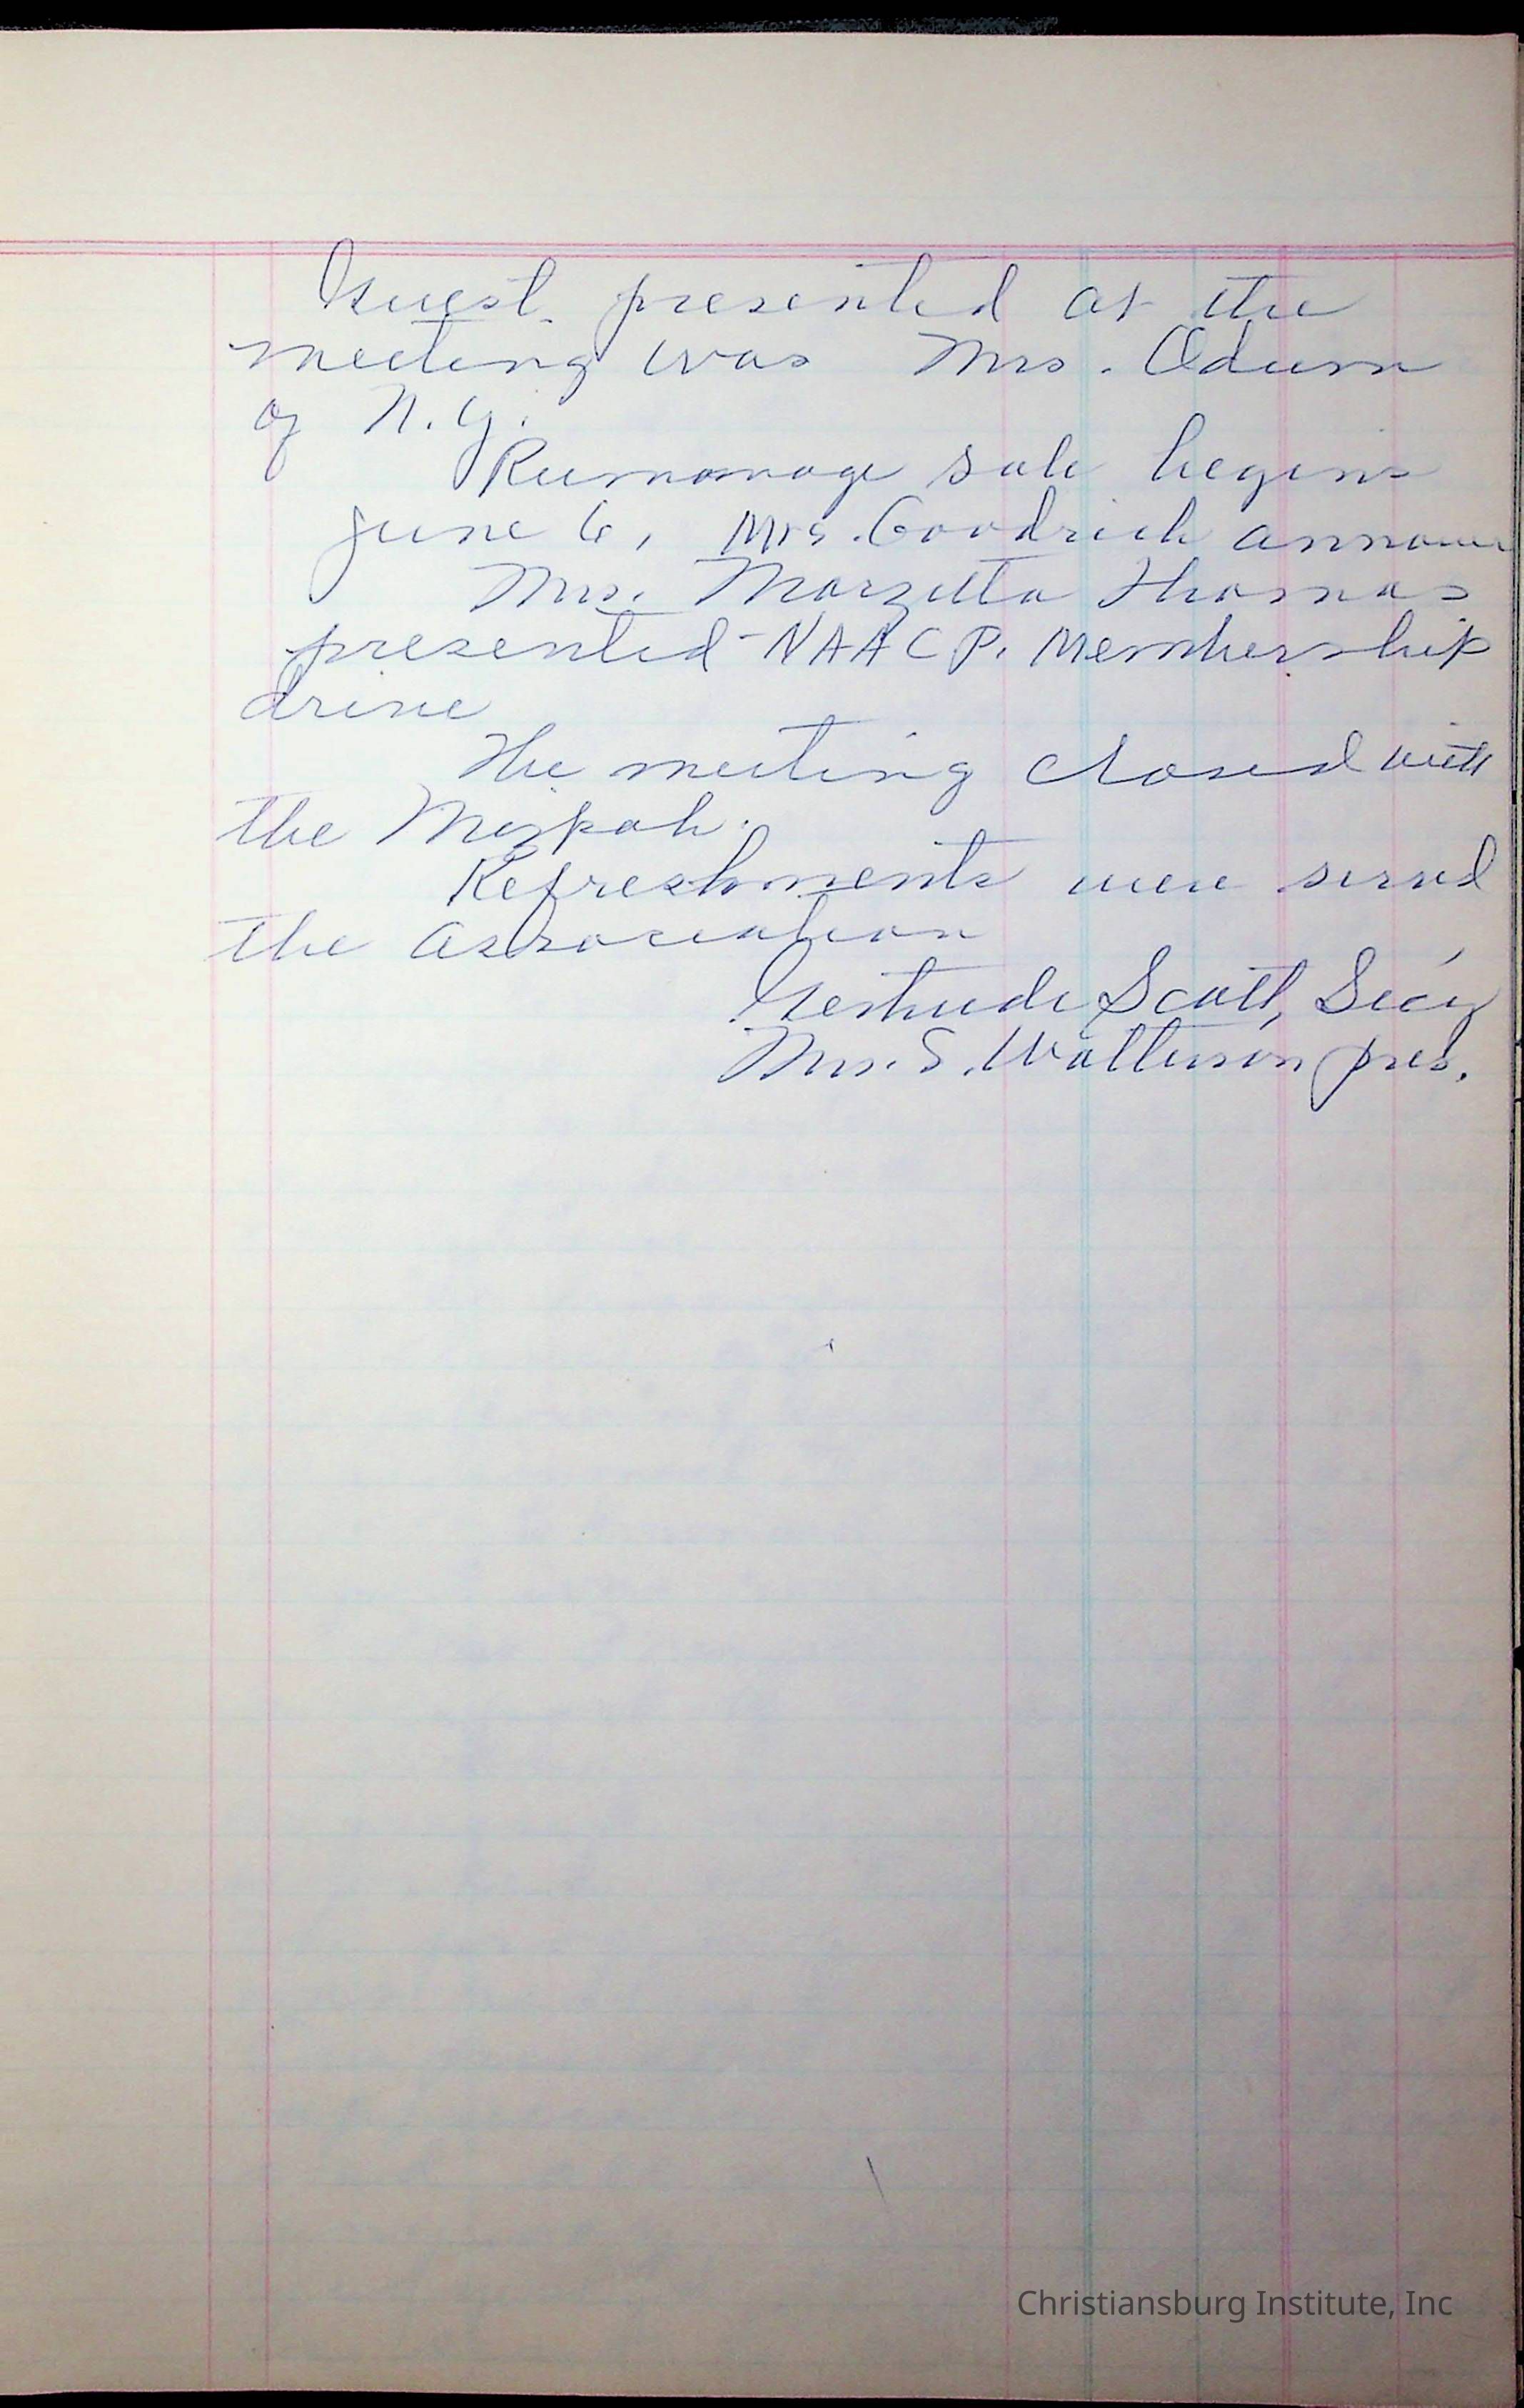 Guest presented at the
meeting was Mrs. Odum
of N.Y.
Rummage sale begins
June 6, Mrs. Goodrich
Mrs. Marzetta Thomas
presented NAACP. Membership
drive
The meeting closed with
the Mizpah.
Refreshments were served
the association
Gertrude Scott, Sec'y
Mrs. S. Watterson pres.
Christiansburg Institute, Inc